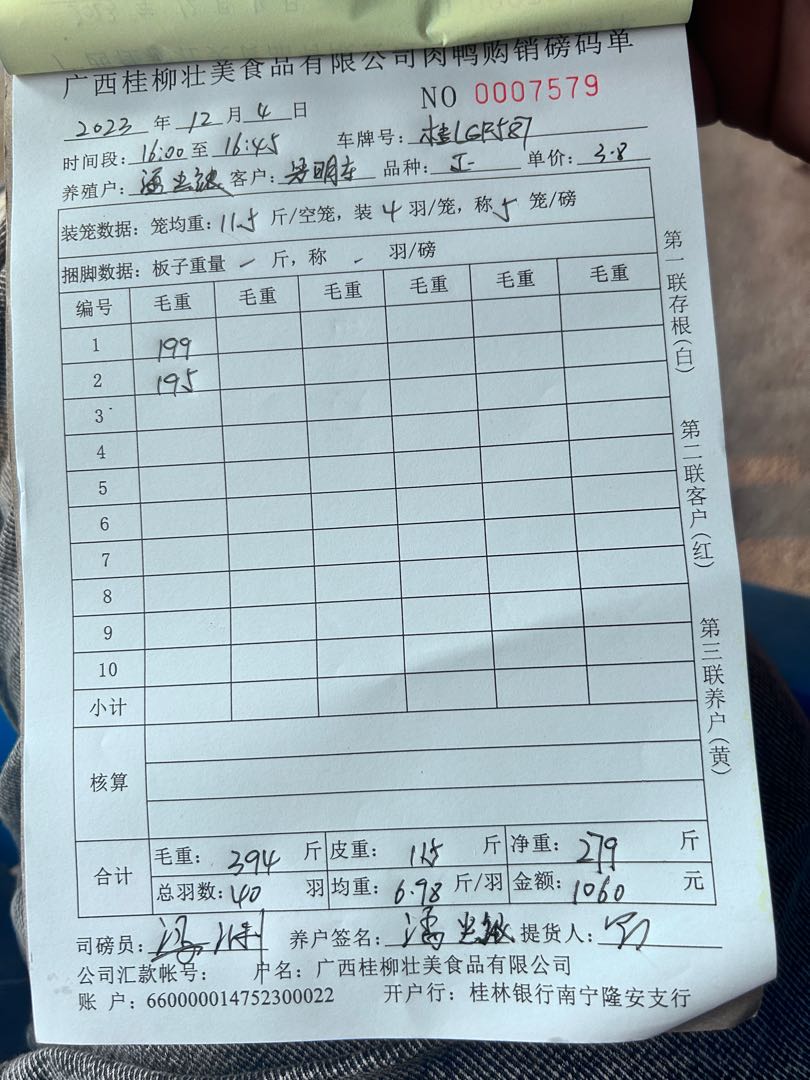 广西桂柳壮美食品有限公司肉鸭购销磅码单
NO 0007579
2023 年 12 月 4 日
时间段：16:00 至 16:45 车牌号：桂LGR587
养殖户： 客户： 品种： 单价：3.8
装笼数据：笼均重：11.5 斤/空笼，装 4 羽/笼，称 5 笼/磅
捆脚数据：板子重量 - 斤，称 - 羽/磅
编号 毛重 毛重 毛重 毛重 毛重 毛重
1 199
2 195
3
4
5
6
7
8
9
10
小计
核算
合计 毛重：394 斤 皮重：115 斤 净重：279 斤
总羽数：40 羽 均重：6.98 斤/羽 金额：1060 元
司磅员： 养户签名： 提货人：
公司汇款帐号： 户名：广西桂柳壮美食品有限公司
账 户：660000014752300022 开户行：桂林银行南宁隆安支行
第一联存根（白）
第二联客户（红）
第三联养户（黄）